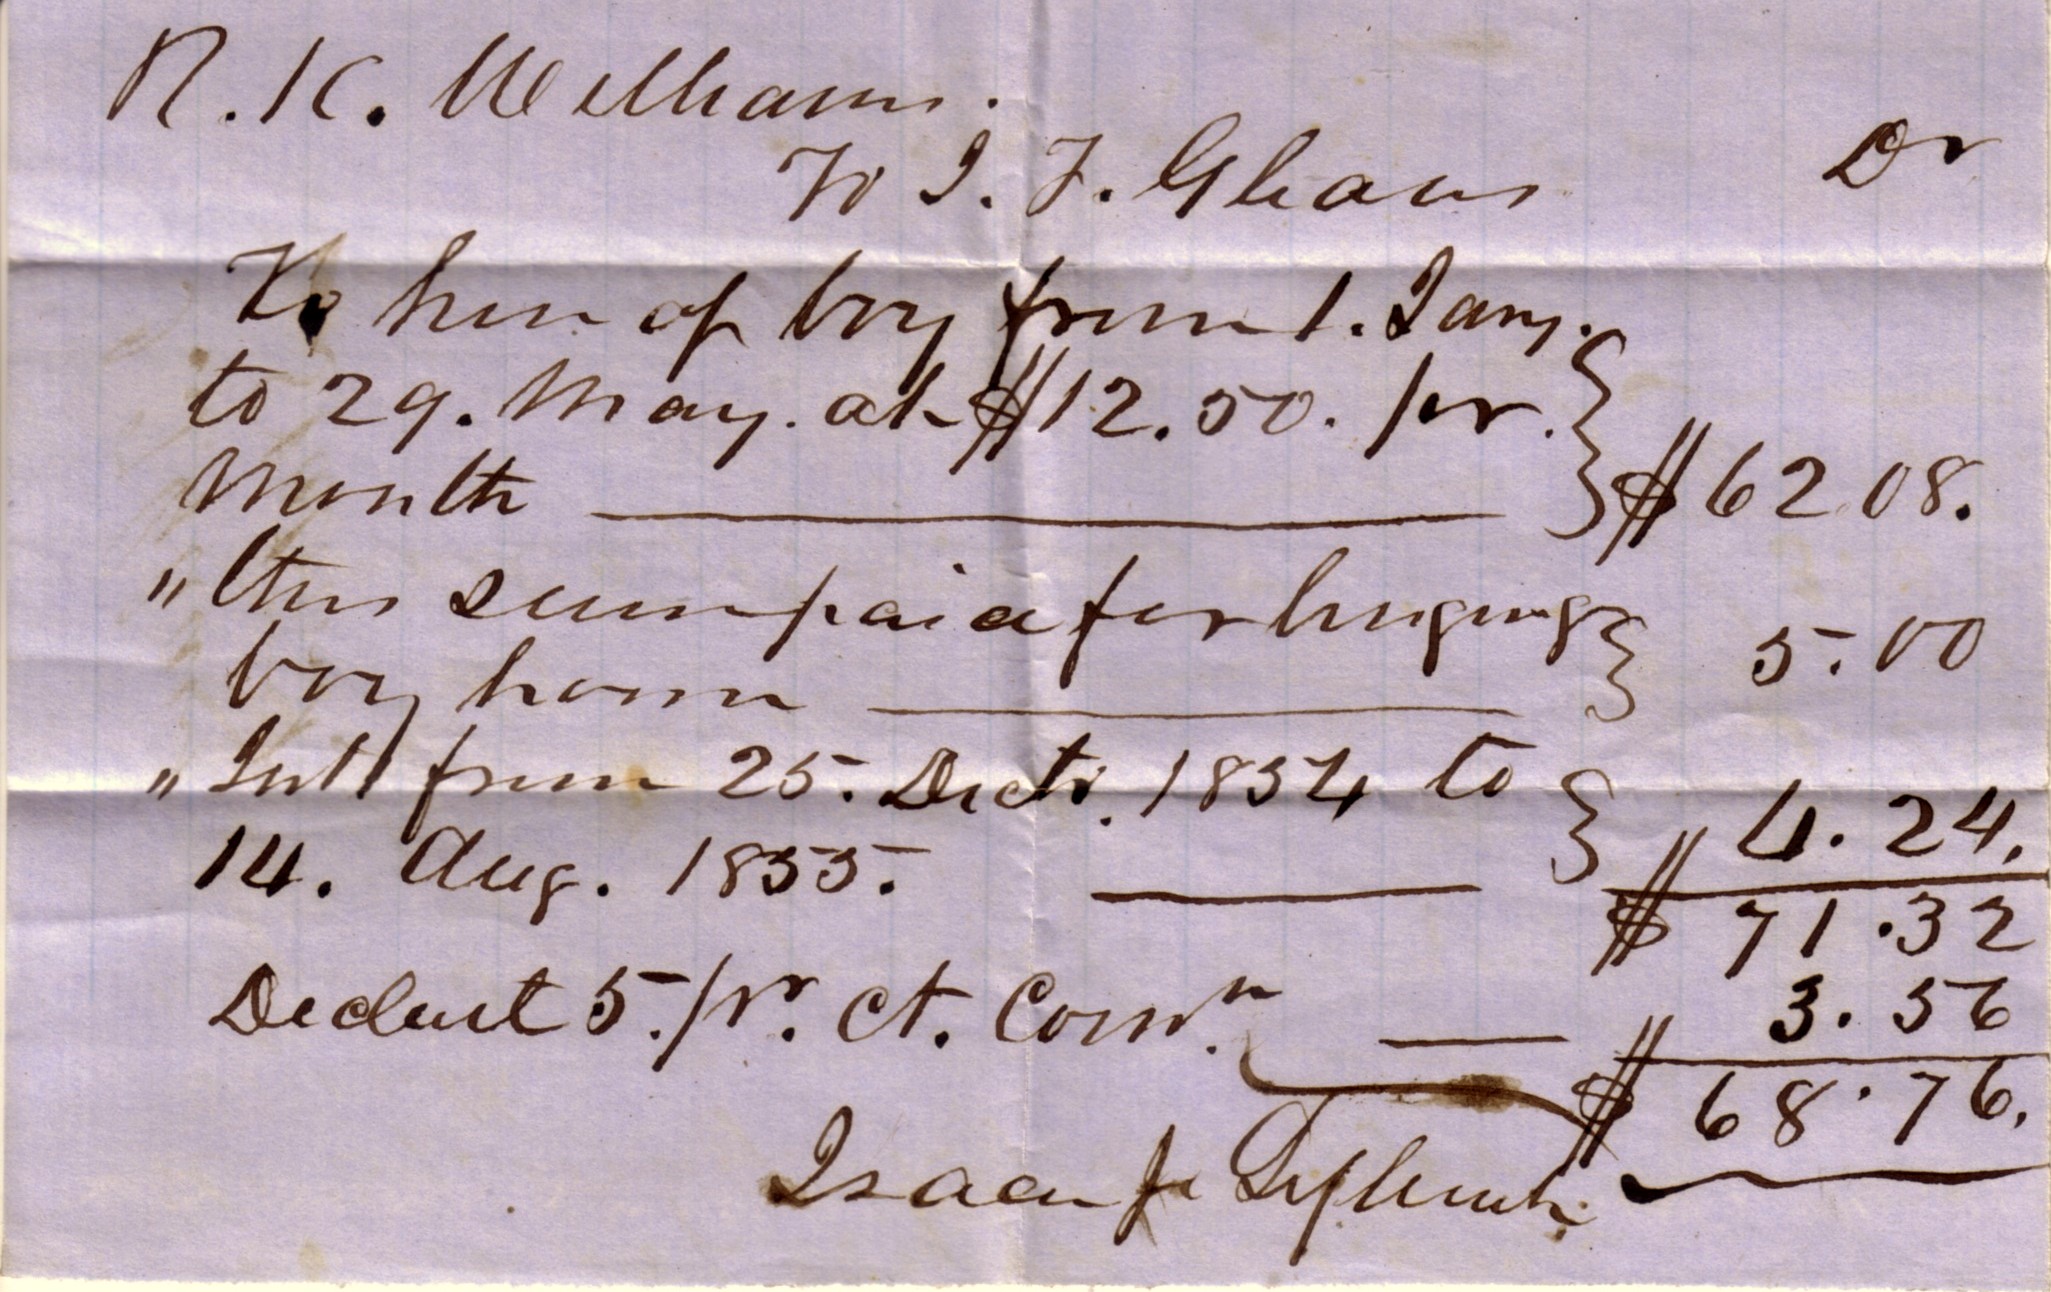 R. K. Williams.
To I. F. Dr
To hire of boy from 1. Jany.
to 29. May. at $12.50. pr.
Month $62.08.
" this sum paid for bringing
boy home 5.00
" Intt from 25. Decbr. 1854 to
14. Aug. 1855. 4.24.
$71.32
Deduct 5. pr. ct. Comn. 3.56
$68.76.
Isaac